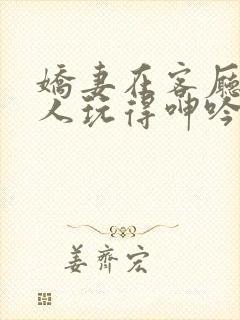 嬌妻在客厅
人玩得呻吟
姜齊宏